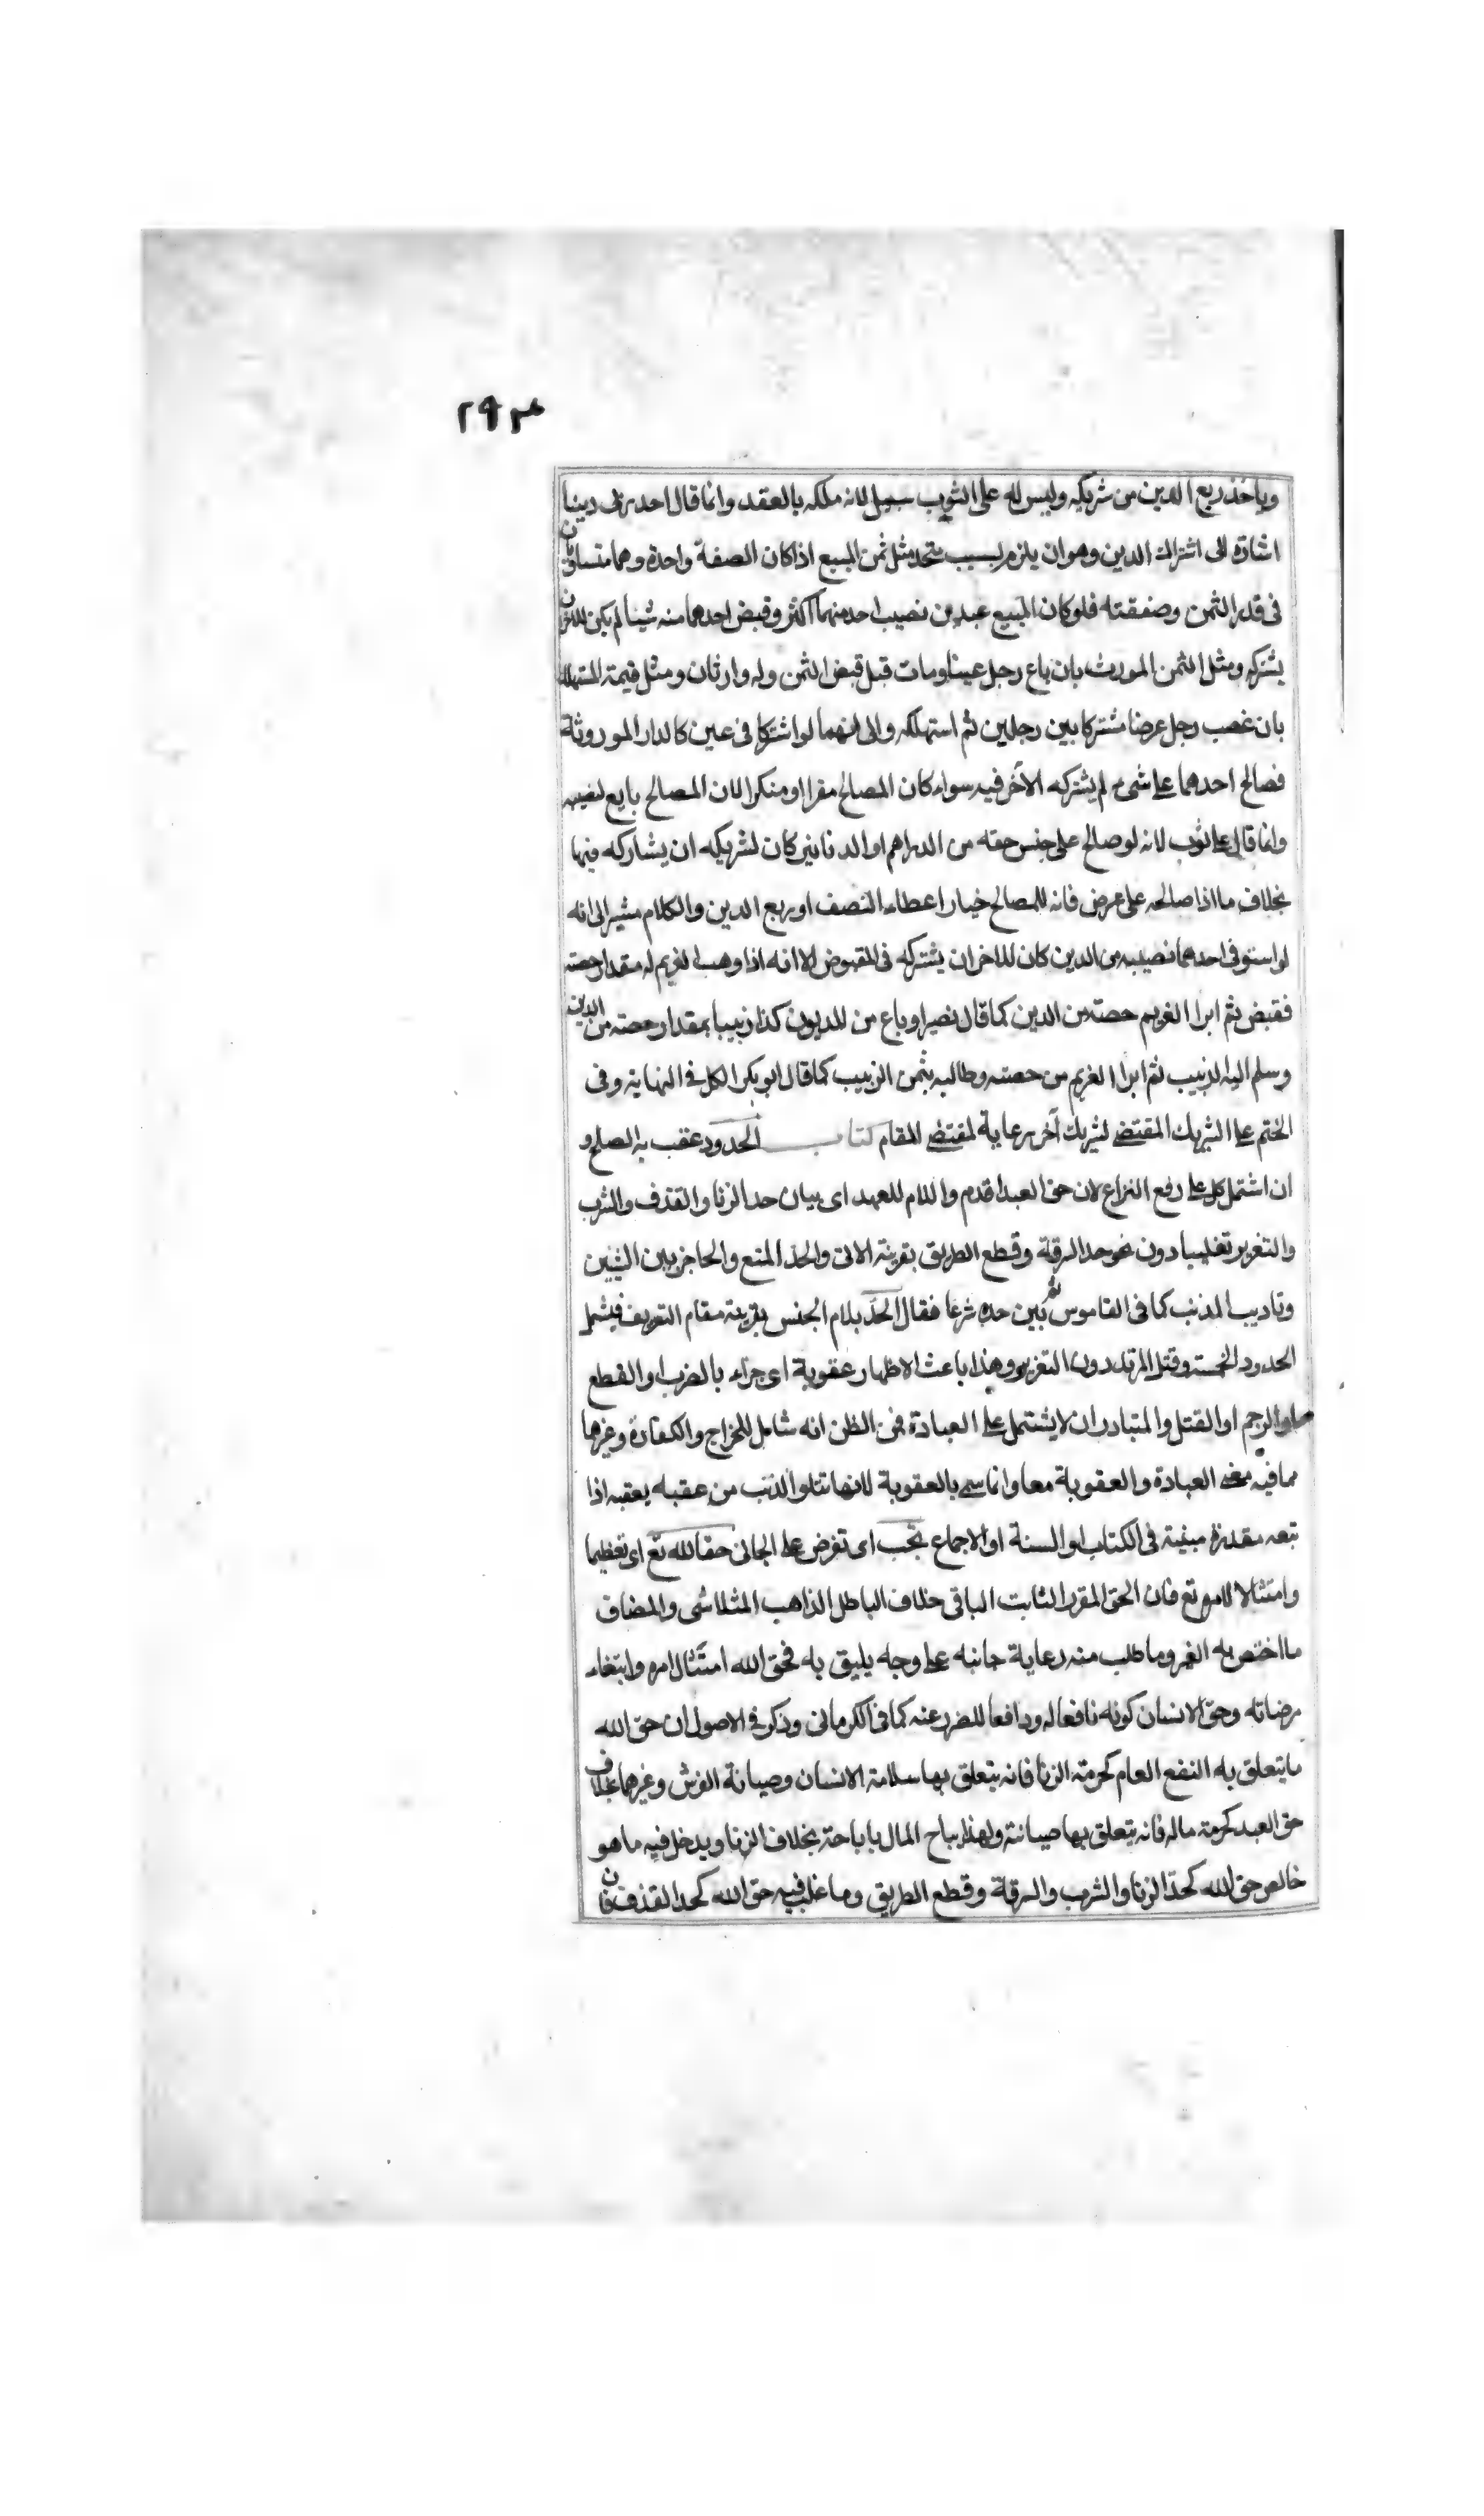 ٢٩٣
وياخذ ربع الدين من شريكه وليس له على الثوب سبيل لانه ملكه بالعقد وانما قال احد ربى دينا
اشارة الى اشتراك الدين وهو ان يلزم بسبب متحد مثل ثمن المبيع اذا كان الصفة واحدة وهما متساويان
فى قدر الثمن وصفقته فلو كان المبيع عبد من نصيب احد منهما اكثر وقبض احدهما منه شيئا لم يكن للاخر ان
يشركه ومثل الثمن المورث بان باع رجل عينا ومات قبل قبض الثمن وله وارثان ومثل قيمة المستهلك
بان غصب رجل عرضا مشتركا بين رجلين ثم استهلكه والى انهما لو اشتركا فى عين كالدار الموروثة
فصالح احدهما على شئ لم يشركه الآخر فيه سواء كان المصالح مقرا او منكرا لان المصالح بايع لنصيبه
وانما قال على ثوب لانه لو صالح على جنس حقه من الدراهم او الدنانير كان لشريكه ان يشاركه فيها
بخلاف ما اذا صالحه على عرض فانه للمصالح خيار اعطاء النصف او ربع الدين والكلام مشير الى انه
لو استوفى احدهما نصيبه من الدين كان للاخر ان يشتركه فى المقبوض الا انه اذا وهب الغريم له مقدار حصته
فقبض ثم ابرا الغريم حصته من الدين كما قال نصير او باع من المديون كذا زبيبا بمقدار حصته من الدين
وسلم اليه الزبيب ثم ابرا الغريم من حصته وطالبه بثمن الزبيب كما قال ابو بكر الكل فى النهاية وفى
الختم على الشريك المقتضى لشريك آخر رعاية لمقتضى المقام كتاب الحدود عقب به الصلح و
ان اشتمل كل على رفع النزاع لان حق العبد اقدم واللام للعهد اى بيان حد الزنا والقذف والشرب
والتعزير تغليبا دون نحو حد السرقة وقطع الطريق بقرينة الاتى والحد المنع والحاجز بين الشيئين
وتاديب المذنب كما فى القاموس ثم بين حده شرعا فقال الحد بلام الجنس بقرينة مقام التعريف فيشمل
الحدود الخمسة وقتل المرتد دون التعزير وهذا باعث الاظهار عقوبة اى جزاء بالضرب او القطع
او الرجم او القتل والمتبادر ان لا يشتمل على العبادة فمن الظن انه شامل للخراج والكفارة وغيرها
مما فيه معنى العبادة والعقوبة معا وانما سمى بالعقوبة لانها تتلو الذنب من عقبه يعقبه اذا
تبعه مقدرة مبينة فى الكتاب او السنة او الاجماع تجب اى تفرض على الجانى حقا لله تع اى تعظيما
وامتثالا لامره تع فان الحق المقرر الثابت الباقى خلاف الباطل الذاهب المتلاشى والمضاف
ما اختص به الغير وما طلب منه رعاية جانبه على وجه يليق به فحق الله امتثال امره وابتغاء
مرضاته وحق الانسان كونه نافعا له ودافعا للضرر عنه كما فى الكرمانى وذكر فى الاصول ان حق الله
ما يتعلق به النفع العام كحرمة الزنا فانه يتعلق بها سلامة الانسان وصيانة الفرش وغيرها بخلاف
حق العبد كحرمة ماله فانه يتعلق بها صيانته ولهذا يباح المال باباحته بخلاف الزنا ويدخل فيه ما هو
خالص حق الله كحد الزنا والشرب والسرقة وقطع الطريق وما غلب فيه حق الله كحد القذف فان